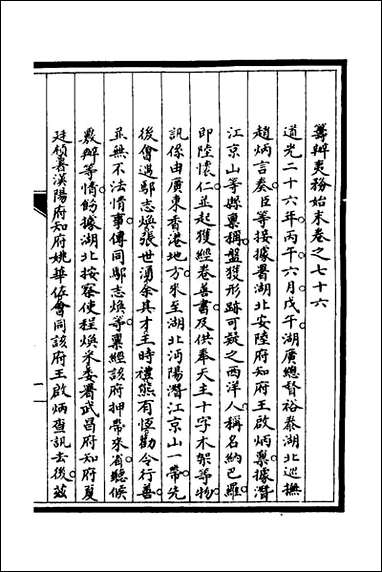 籌辦夷務始末卷之七十六
道光二十六年丙午六月戊午湖廣總督裕泰湖北巡撫
趙炳言奏臣等接據署湖北安陸府知府王啟炳稟據潛
江京山等縣稟稱盤獲形跡可疑之西洋人稱名納巴羅
即陸懷仁並起獲經卷善書及供奉天主十字木架等物
訊係由廣東香港地方來至湖北沔陽潛江京山一帶先
後會遇鄢志煥張世湧余具才主時禮熊有恆勸令行善
並無不法情事傳同鄢志煥等稟經該府押帶來省聽候
嚴辦等情飭據湖北按察使程煥采委署武昌府知府夏
廷楨署漢陽府知府姚華佐會同該府王啟炳查訊去後茲
一